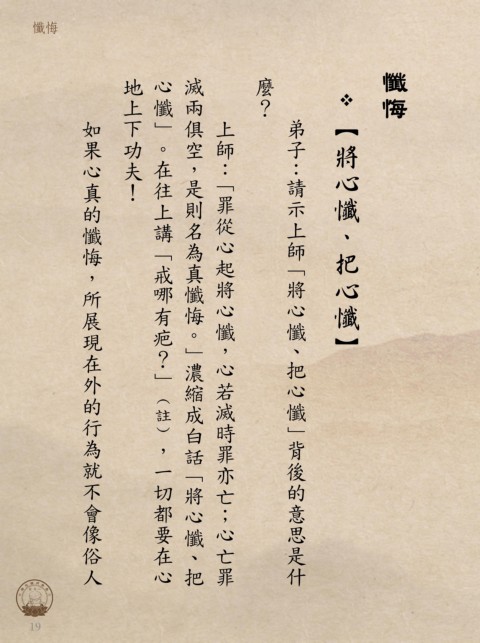 懺悔
懺悔
❖【將心懺、把心懺】
弟子：請示上師「將心懺、把心懺」背後的意思是什
麼？
上師：「罪從心起將心懺，心若滅時罪亦亡；心亡罪
滅兩俱空，是則名為真懺悔。」濃縮成白話「將心懺、把
心懺」。在往上講「戒哪有疤？」（註），一切都要在心
地上下功夫！
如果心真的懺悔，所展現在外的行為就不會像俗人
19